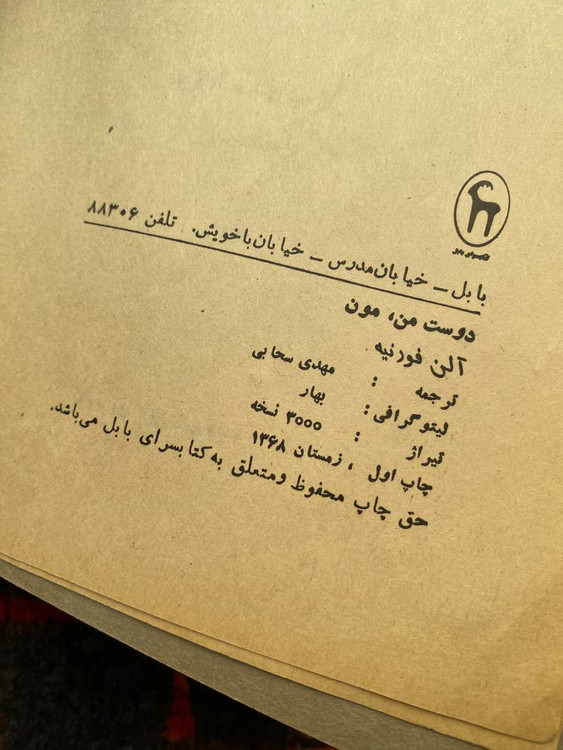 بابل – خیابان مدرس – خیابان باخویش. تلفن ۸۸۳۰۶
دوست من، مون
آلن فورنیه
ترجمه : مهدی سحابی
لیتوگرافی: بهار
تیراژ : ۳۰۰۰ نسخه
چاپ اول ، زمستان ۱۳۶۸
حق چاپ محفوظ ومتعلق به کتابسرای بابل می‌باشد.